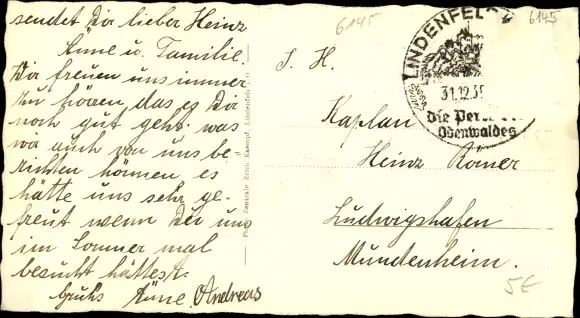 sendet Dir lieber Heinz
Änne u. Familie.
Wir freuen uns immer
zu hören das es Dir
noch gut geht. was
wir auch von uns be-
richten können, es
hätte uns sehr ge-
freut wenn Du uns
im Sommer mal
besucht hättest.
Gruhs Änne. Andreas
Photo Zentrale Erich Kaempf, Lindenfels i. O.
6145
6145
LINDENFELS
31.12.35
die Per
Odenwaldes
S. H.
Kaplan
Heinz Römer
Ludwigshafen
Mundenheim.
5€